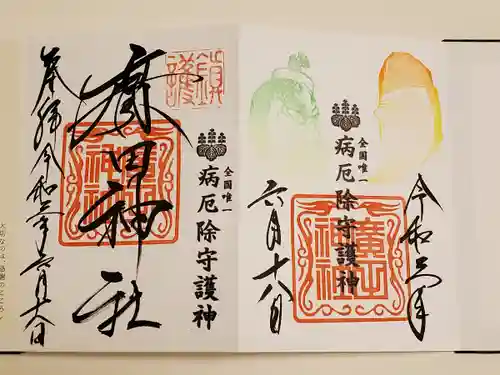 令和三年
全国唯一
病厄除守護神
廣田神社
六月十八日
全国唯一
病厄除守護神
鎮護
廣田神社
廣田神社
奉拝 令和三年六月十八日